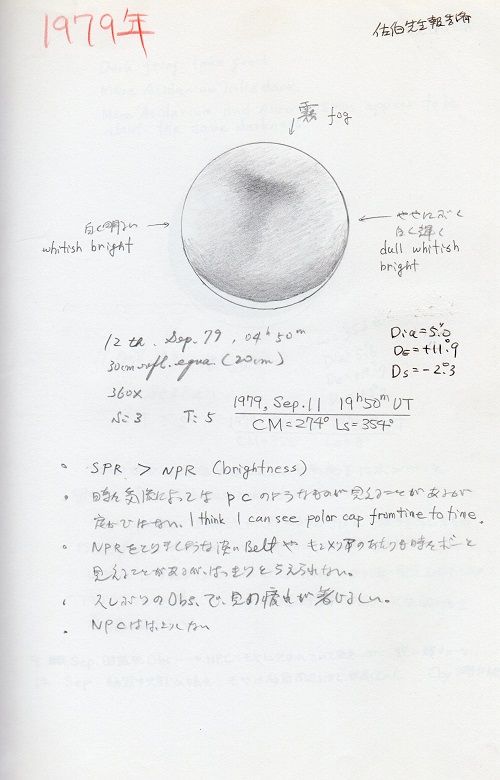 1979年
佐伯先生報告済
霧 fog
白く明るい
whitish bright
ややにぶく
白く輝く
dull whitish
bright
12th. Sep. 79, 04h 50m
30cm refl. equa. (20cm)
360x
S: 3 T: 5
Dia=5".0
DE=+11°.9
DS=-2°.3
1979, Sep. 11 19h50m UT
CM=274° Ls=354°
• SPR > NPR (brightness)
• 時々気流によっては pcのようなものが見えることがあるが
定かではない. I think I can see polar cap from time to time.
• NPRをとりまくような淡いBeltや のあたりも時々ボーと
見えることがあるが、はっきりと らえられない。
• 久しぶりのObs.で、目の疲れが著しい。
• NPCははっきりしない